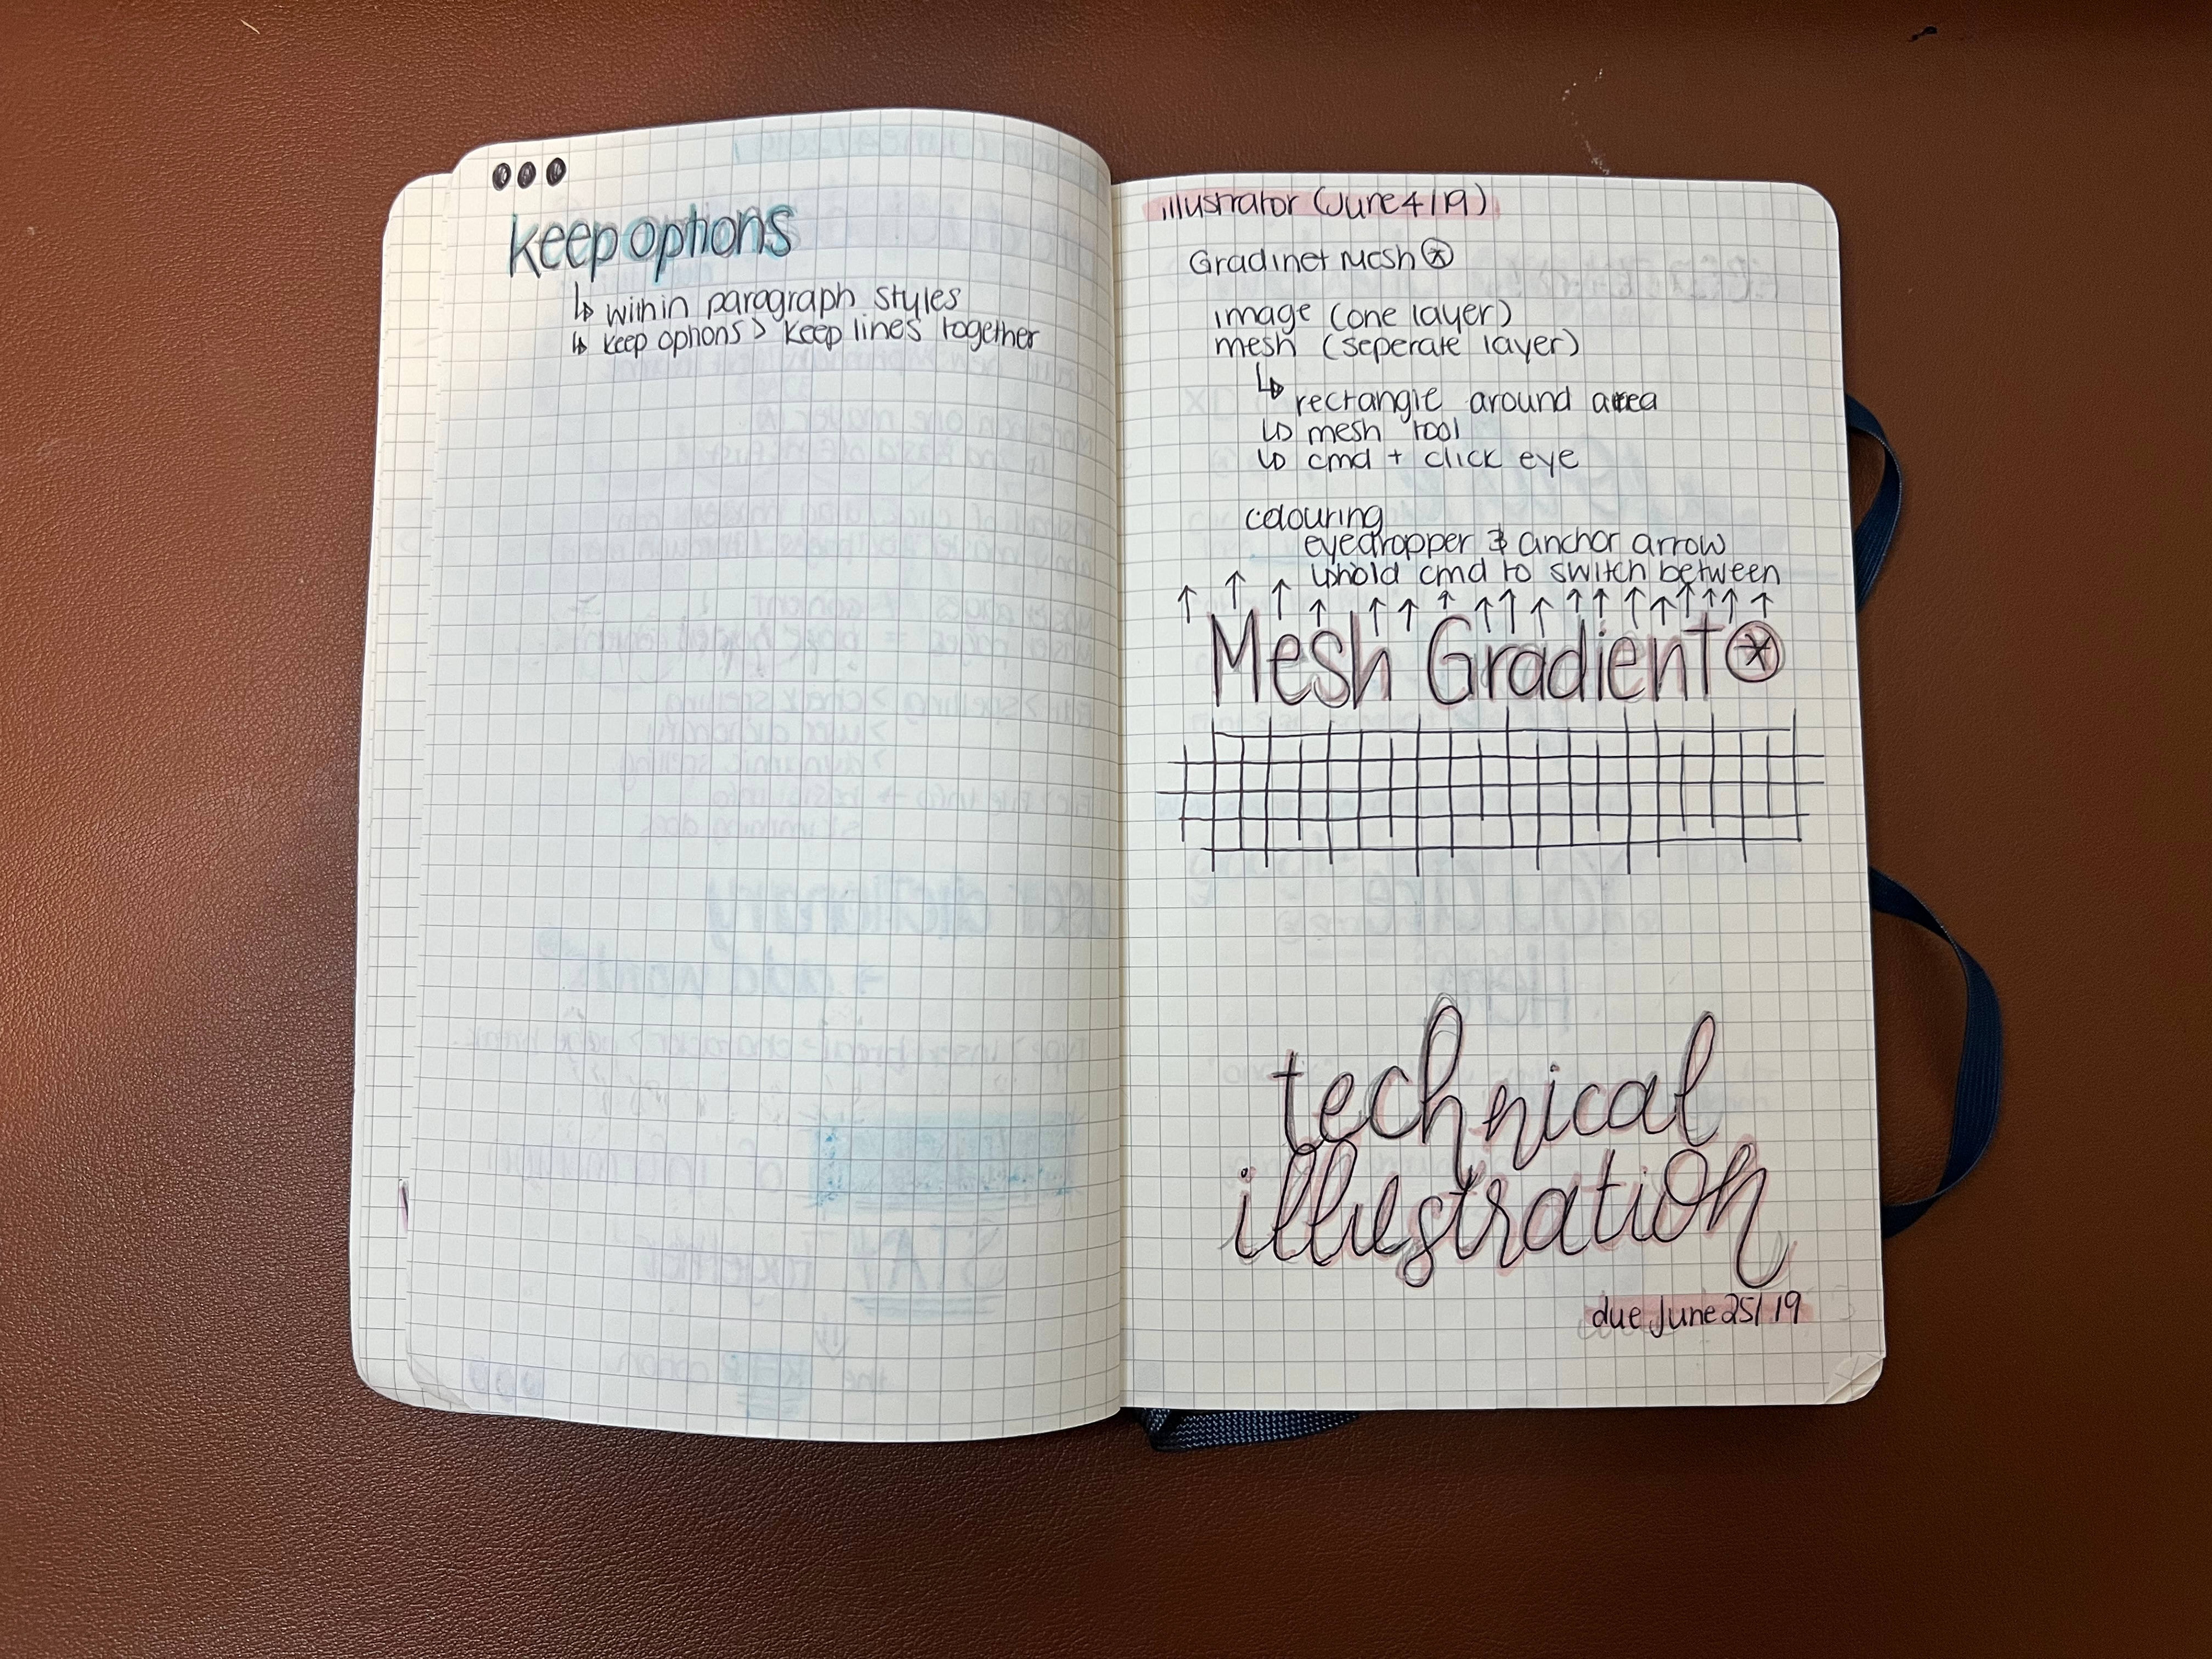 keep options
↳ within paragraph styles
↳ keep options > keep lines together
illustrator (June 4/19)
Gradinet Mesh
image (one layer)
mesh (seperate layer)
↳ rectangle around area
↳ mesh tool
↳ cmd + click eye
colouring
eyedropper & anchor arrow
↳ hold cmd to switch between
↑ ↑ ↑ ↑ ↑ ↑ ↑ ↑ ↑ ↑ ↑ ↑ ↑ ↑ ↑ ↑ ↑ ↑
Mesh Gradient
technical
illustration
due June 25/19